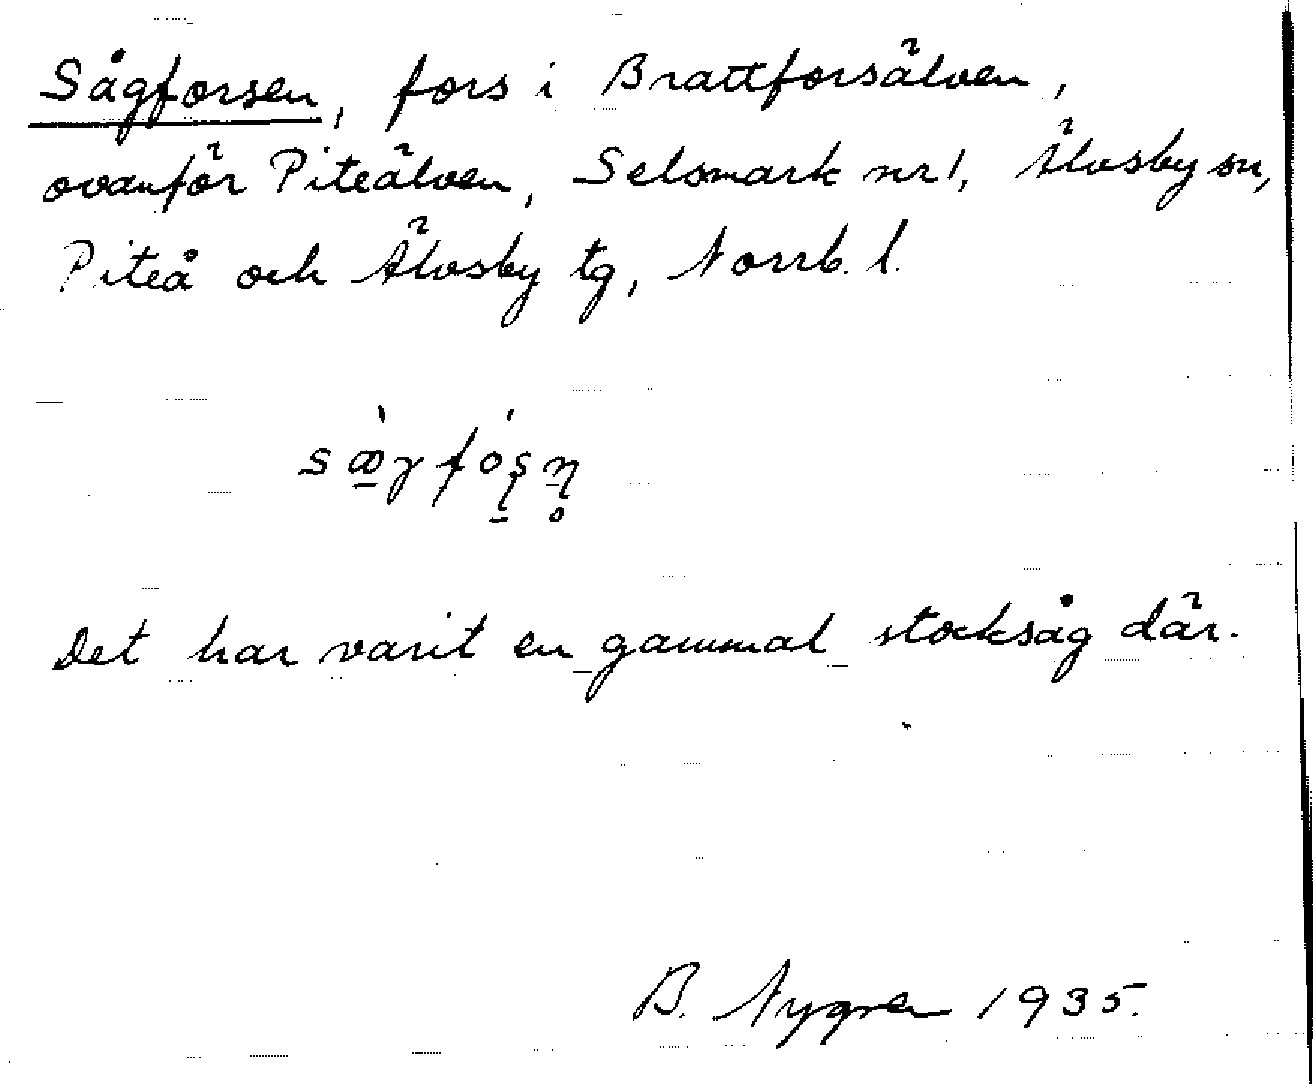 Sågforsen, fors i Brattforsälven,
ovanför Piteälven, Selsmark nr 1, Älvsby sn,
Piteå och Älvsby tg, Norrb. l.
Det har varit en gammal stocksåg där.
B. Nygren 1935.